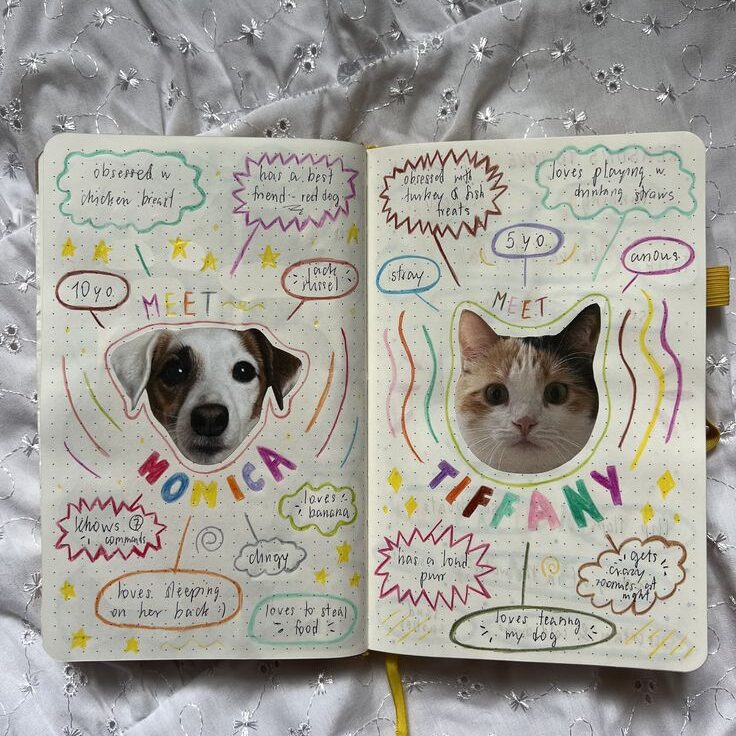 obsessed w
chicken breast
has a best
friend - red dog
10 y.o.
MEET
jack
russel
MONICA
knows 7
commands
loves
banana
clingy
loves sleeping
on her back :)
loves to steal
food
obsessed with
turkey & fish
treats
loves playing w.
drinking straws
5 y.o.
stray
MEET
TIFFANY
has a loud
purr
gets
crazy
zoomies at
night
loves tearing
my dog